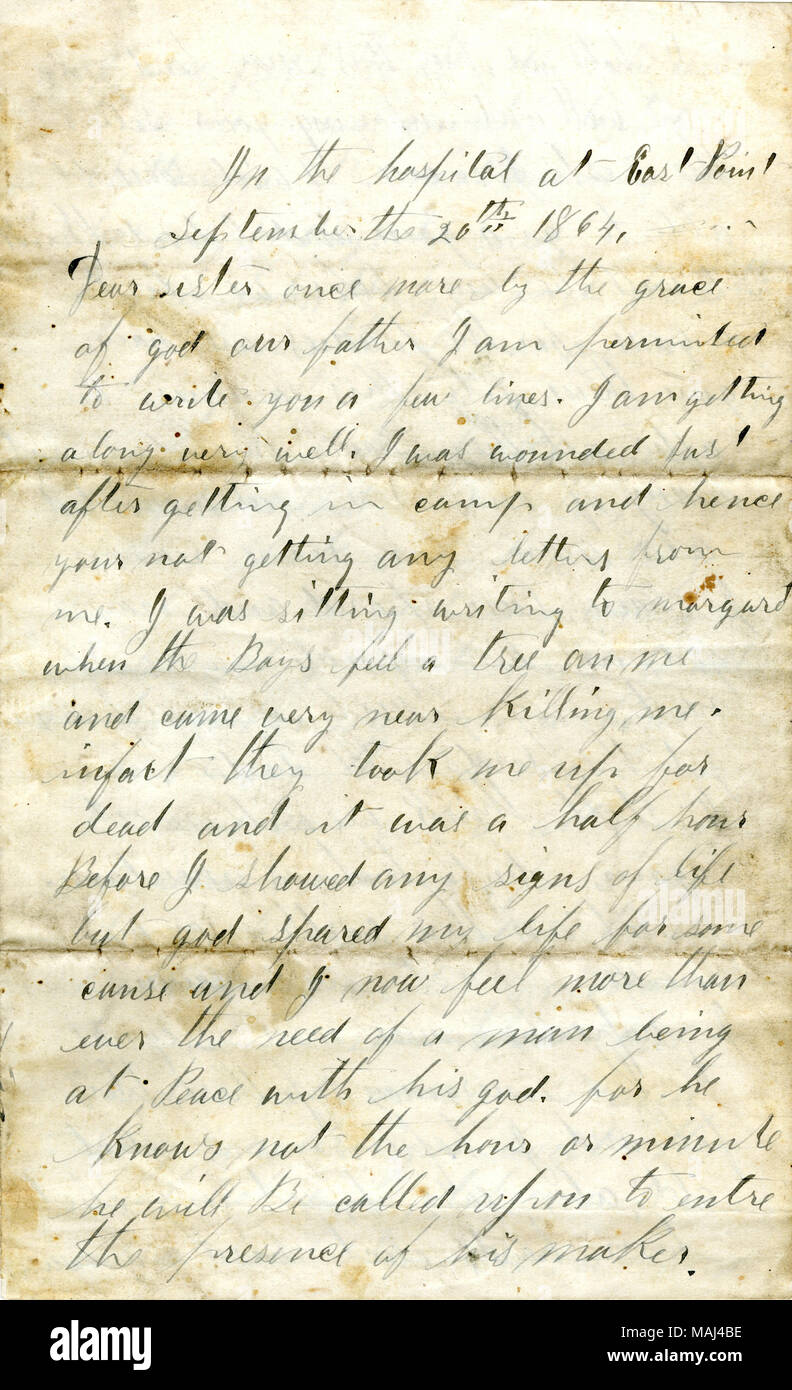 In the hospital at East Point
September the 20th 1864.
Dear sister once more by the grace
of god our father I am permited
to write you a few lines. I am getting
along very well. I was wounded just
after getting in camp and hence
your not getting any letters from
me. I was sitting writing to margard
when the Boys fell a tree on me
and came very near Killing me.
infact they took me up for
dead and it was a half hour
Before I showed any signs of life
but god spared my life for some
cause and I now feel more than
ever the need of a man being
at Peace with his god. for he
knows not the hour or minute
he will Be called upon to entre
the presence of his maker.
alamy
Image ID: MAJ4BE
www.alamy.com